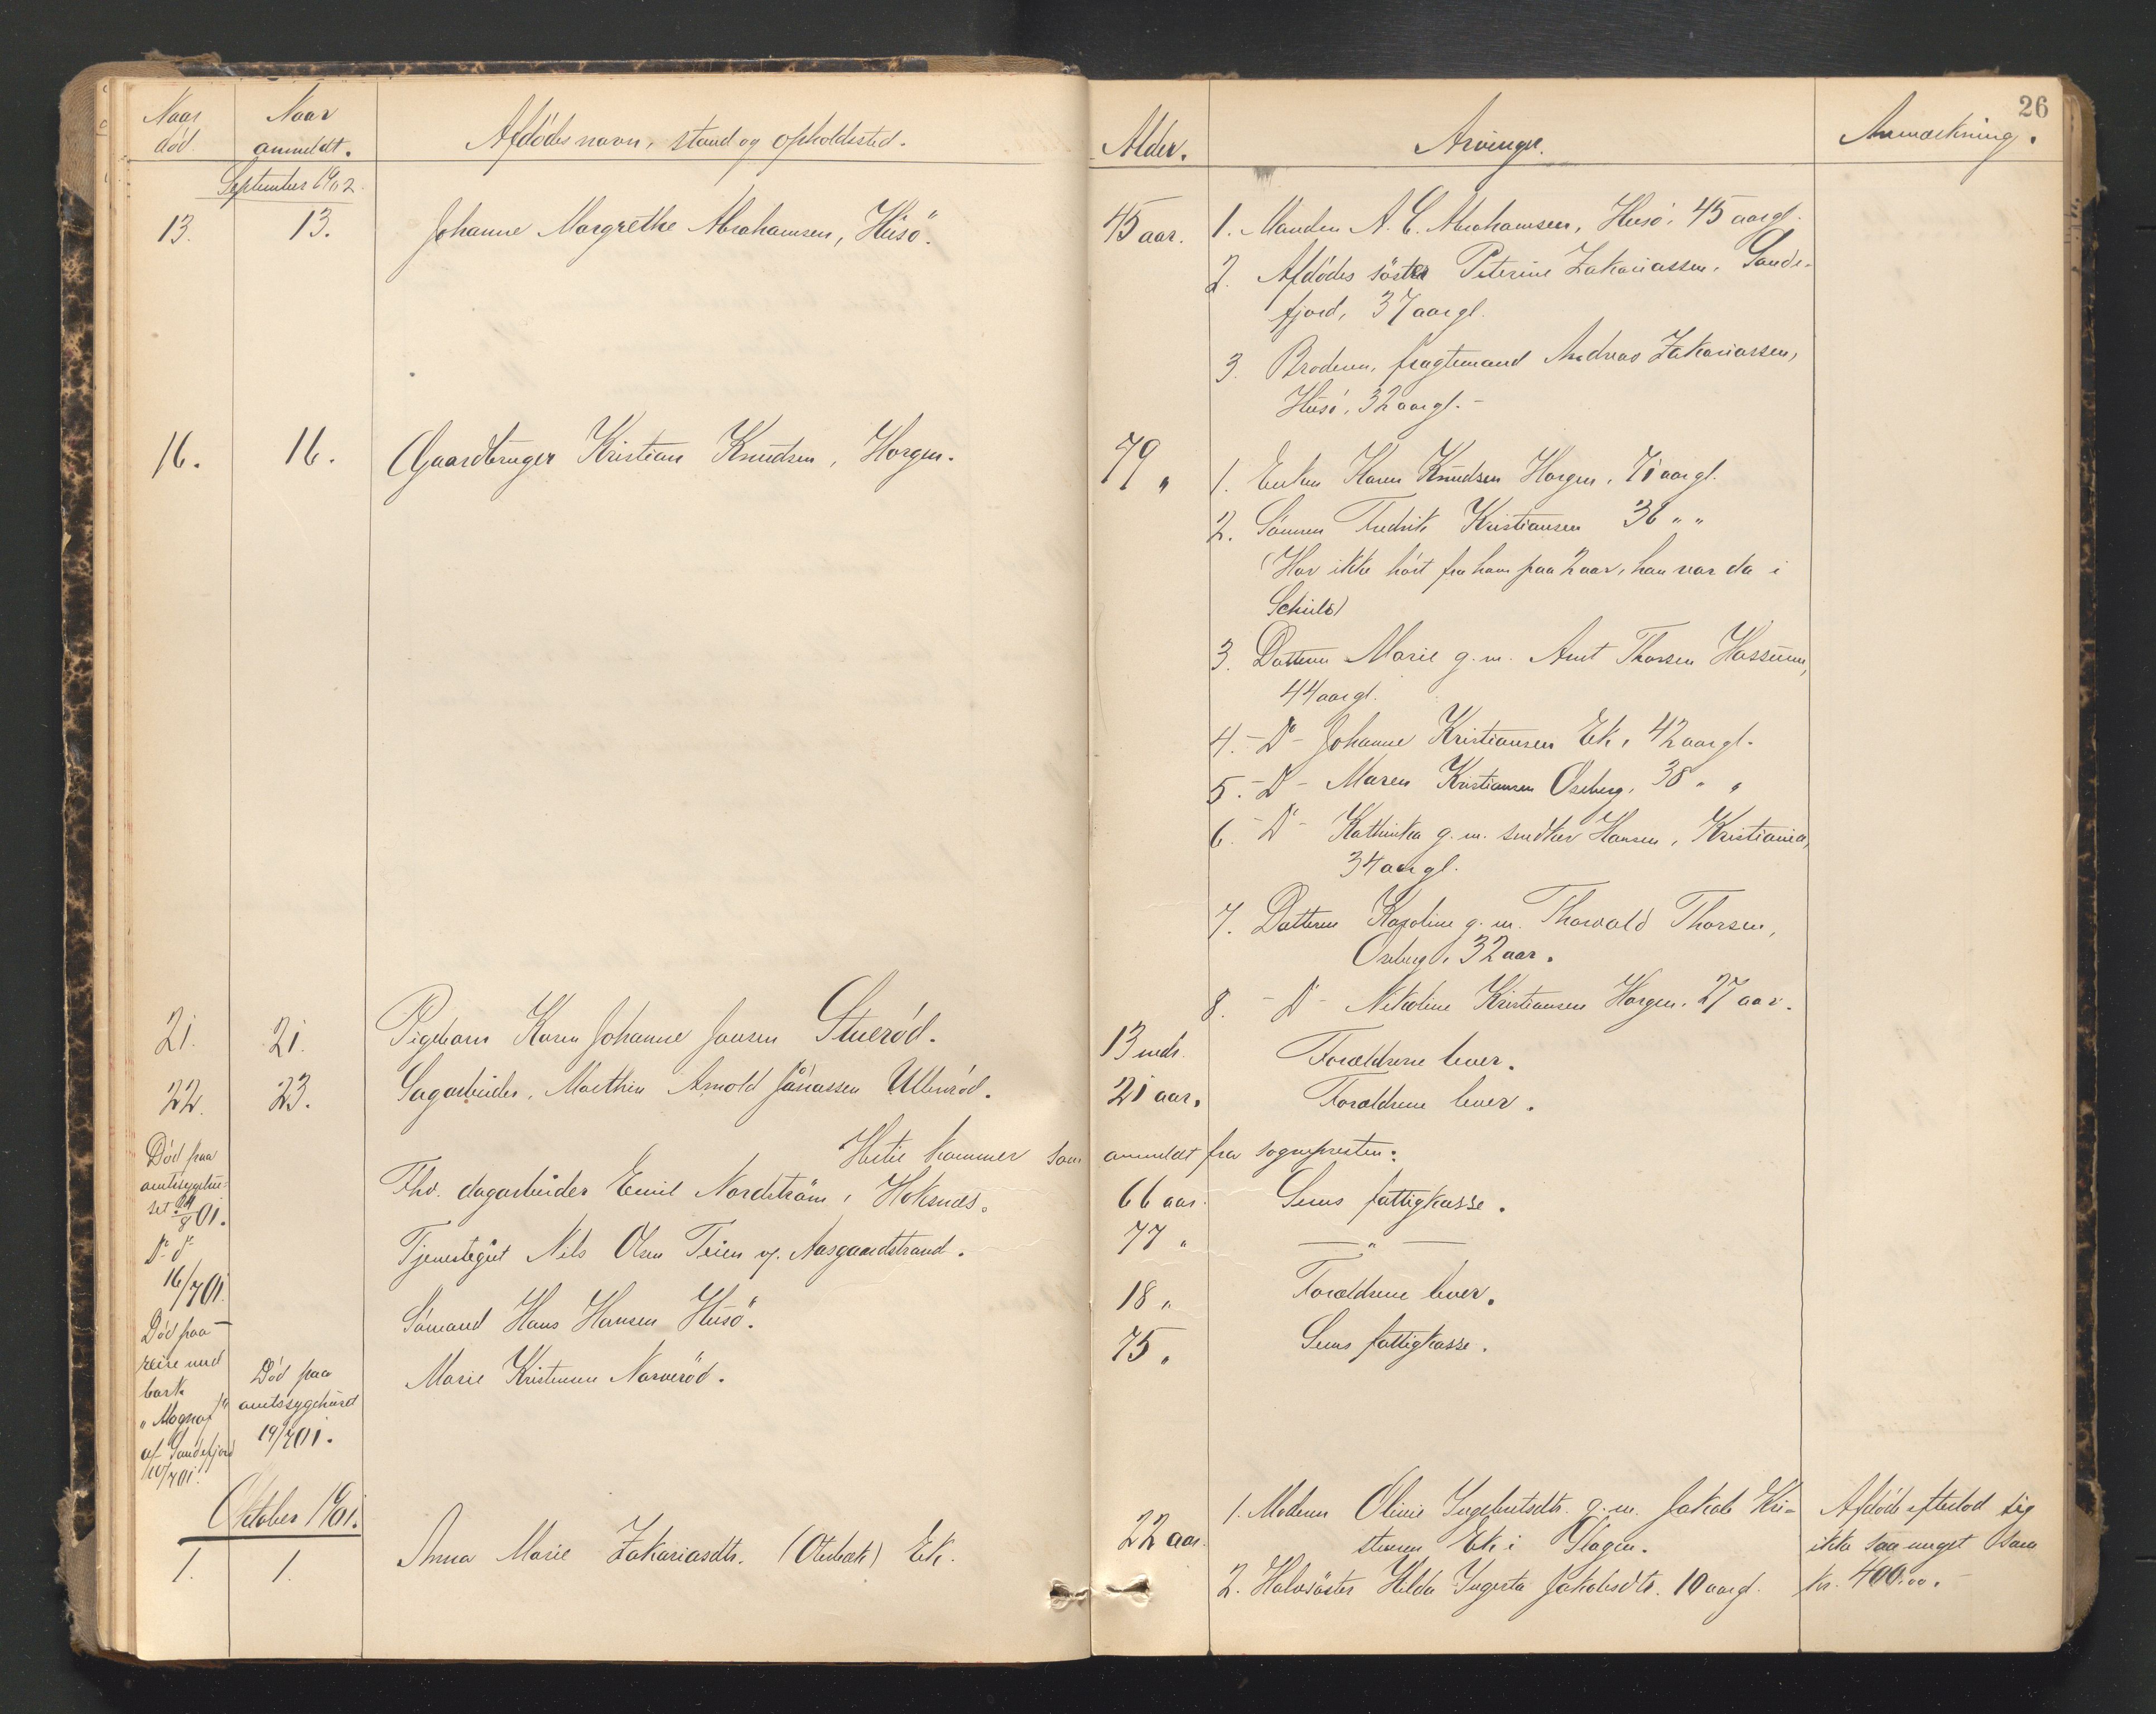 26
Naar død. Naar anmeldt. Afdødes navn, stand og opholdssted. Alder. Arvinger. Anmærkning.
September 1902
13. 13. Johanne Margrethe Abrahamsen, Husö. 45 aar. 1. Manden A. C. Abrahamsen, Husö, 45 aar gl.
2. Afdødes söster Peterine Zakariassen, Sande-
fjord, 37 aar gl.
3. Broderen, fragtemand Andreas Zakariassen,
Husö, 32 aar gl. -
16. 16. Gaardbruger Kristian Knudsen, Horgen. 79 " 1. Enken Karen Knudsen Horgen, 71 aar gl.
2. Sønnen Fredrik Kristiansen 36 " "
(Har ikke hört fra ham paa 2 aar, han var da i
3. Datteren Marie g. m. Ant Thorsen Hassum,
44 aar gl.
4. - Do - Johanne Kristiansen Ek, 42 aar gl.
5. - Do - Maren Kristiansen Oseberg, 38 " "
6. - Do - Kathinka g. m. snedker Hansen, Kristiania,
34 aar gl.
7. Datteren Karoline g. m. Thorvald Thorsen,
Oseberg, 32 aar.
8. - Do - Nikoline Kristiansen Horgen, 27 aar.
21. 21. Pigebarn Karen Johanne Jansen Stuerød. 13 mdr. Forældrene lever.
22. 23. Sagarbeider, Marthin Arnold Johassen Ullenrød. 21 aar. Forældrene lever.
Hertil kommer som anmeldt fra sognepresten:
Død paa
amtssygehu-
set
01. Fhv. dagarbeider Emil Nordström, Hoksnæs. 66 aar. Sems fattigkasse.
Do do
16/7 01. Tjenestegut Nils Olsen Teien v. Aasgaardstrand. 77 " — " —
Død paa
reise med
bark
"Magnaf"
af Sandefjord
10/7 01. Sömand Hans Hansen Husö. 18 " Forældrene lever.
Død paa
amtssygehuset
19/7 01. Marie Kristensen Narverød. 75 " Sems fattigkasse.
Oktober 1901.
1. 1. Anna Marie Zakariasdtr. (Oterbæk) Ek. 22 aar. 1. Moderen Oline Ingebretsdtr. g. m. Jakob Kri-
stensen Ek i Slagen.
2. Halvsöster Hilda Ingerta Jakobsdtr. 10 aar gl.
Afdøde efterlod sig
ikke saa meget som
kr. 400.00. -